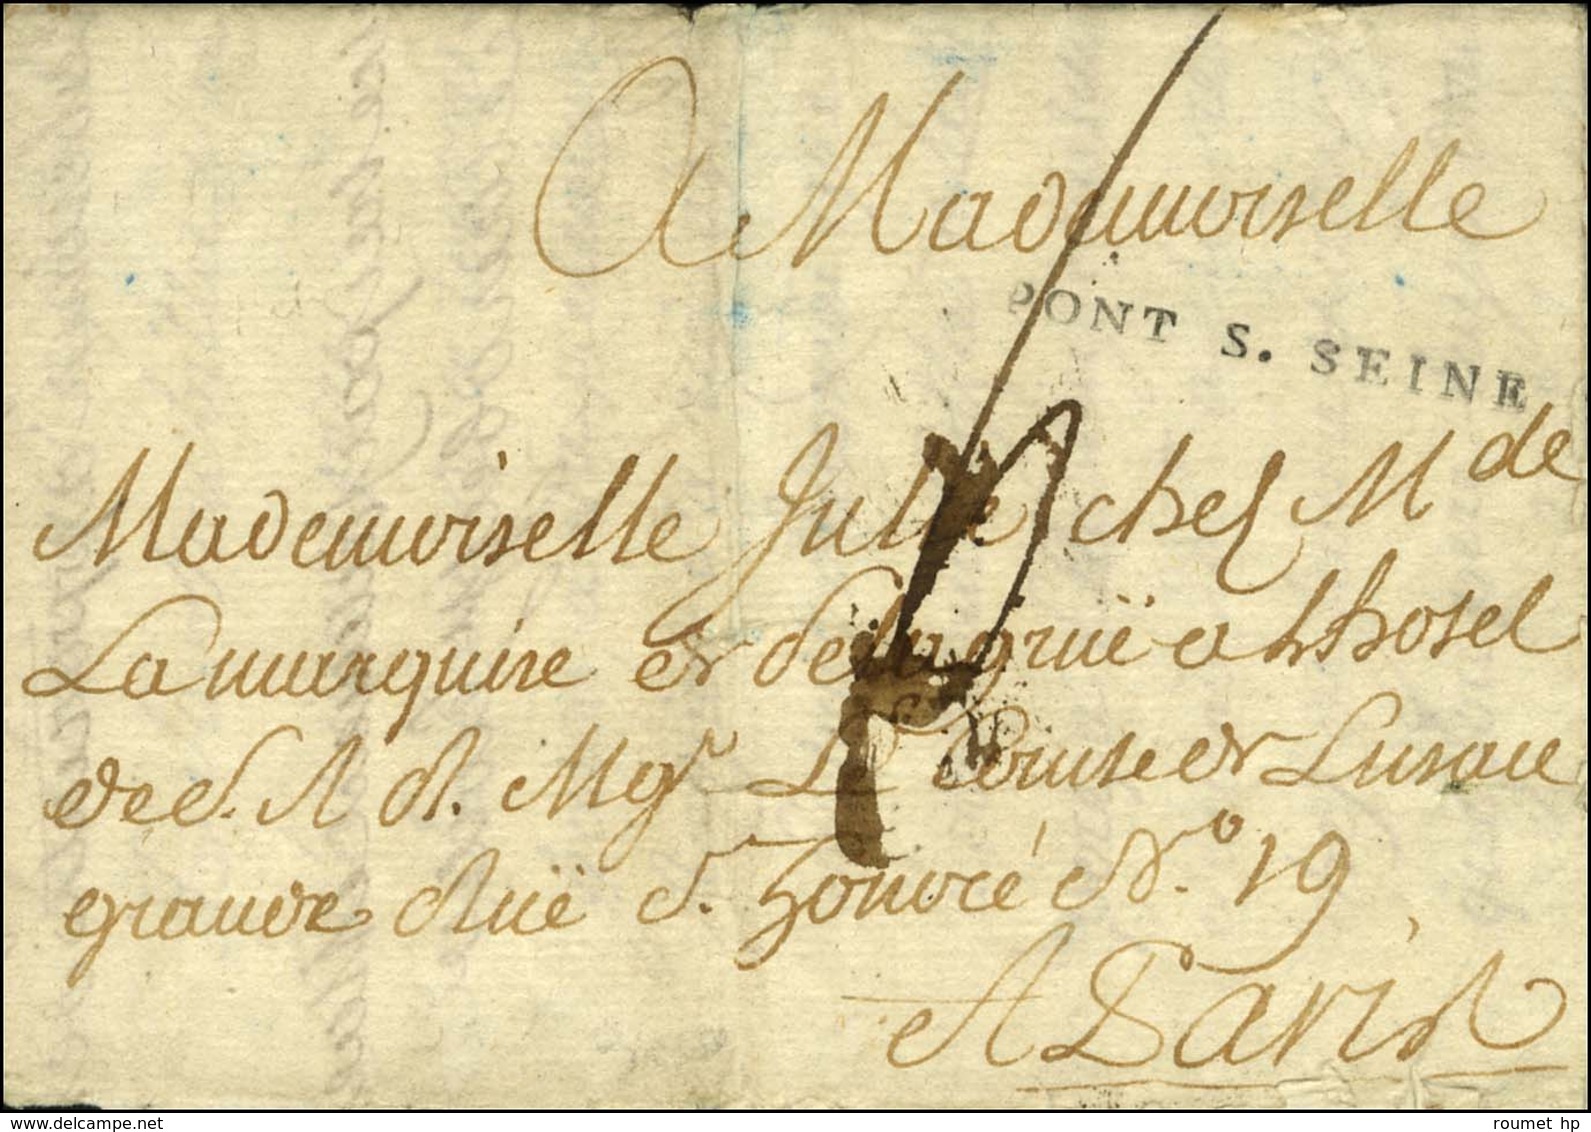 A Mademoiselle
PONT S. SEINE
Mademoiselle Julie chez Md de
La marquise de a Lhotel
de S. A R. Mgr Le Comte de Lusace
grande Ruë St honoré No. 19
A Paris
delcampe.net
roumet hp